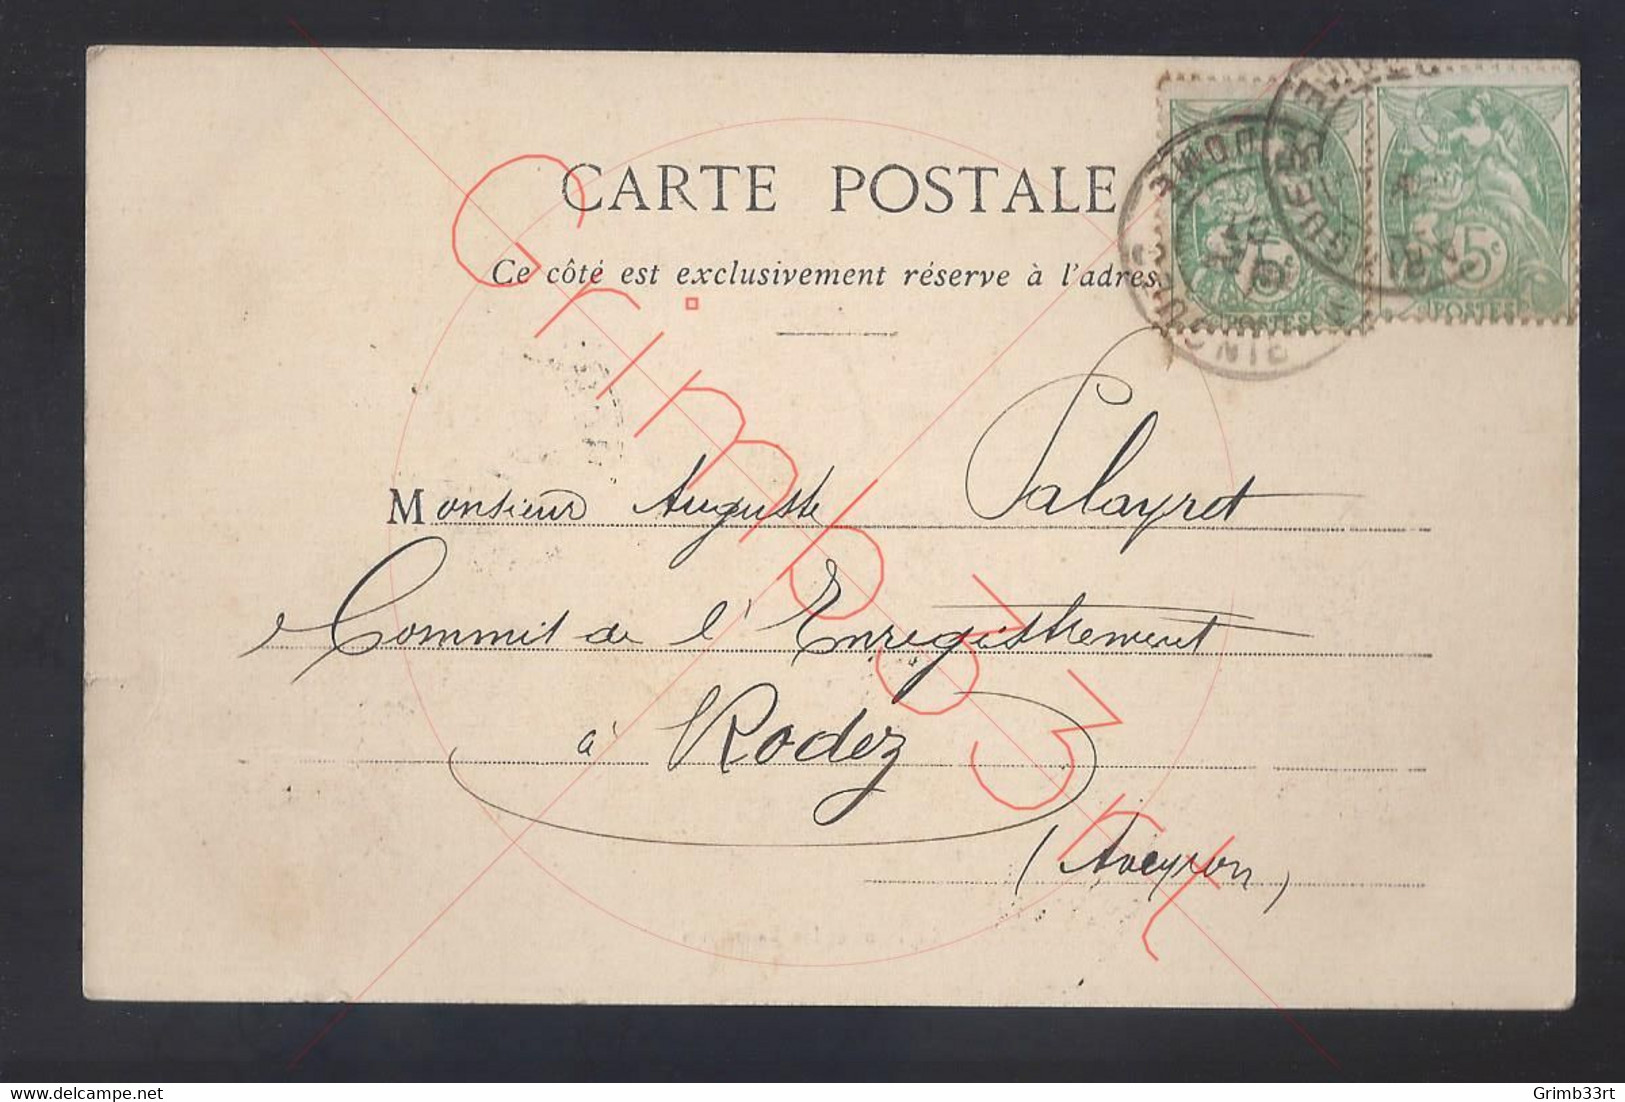 CARTE POSTALE
Ce côté est exclusivement réservé à l'adres
5c 5c
POSTES POSTES
DOME
Monsieur Auguste Palayret
Commis de l'Enregistrement
à Rodez
(Aveyron)
Grimb33rt
www.delcampe.net
Grimb33rt